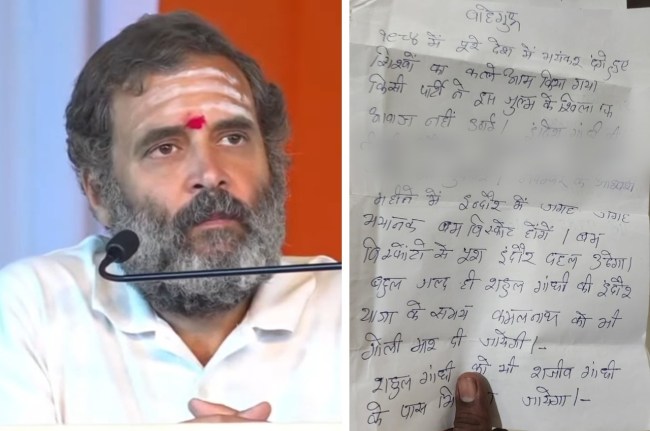 वाहेगुरु
१९८४ में पूरे देश में भयंकर दंगे हुए
सिखों का कत्ले आम किया गया
किसी पार्टी ने इस जुल्म के खिलाफ
आवाज नहीं उठाई।
महीने में इन्दौर में जगह जगह
भयानक बम विस्फोट होंगे। बम
विस्फोटों से पूरा इंदौर दहल उठेगा।
बहुत जल्द ही राहुल गांधी की इंदौर
यात्रा के समय कमलनाथ को भी
गोली मार दी जायेगी।-
राहुल गांधी को भी राजीव गांधी
के पास जायेगा।-